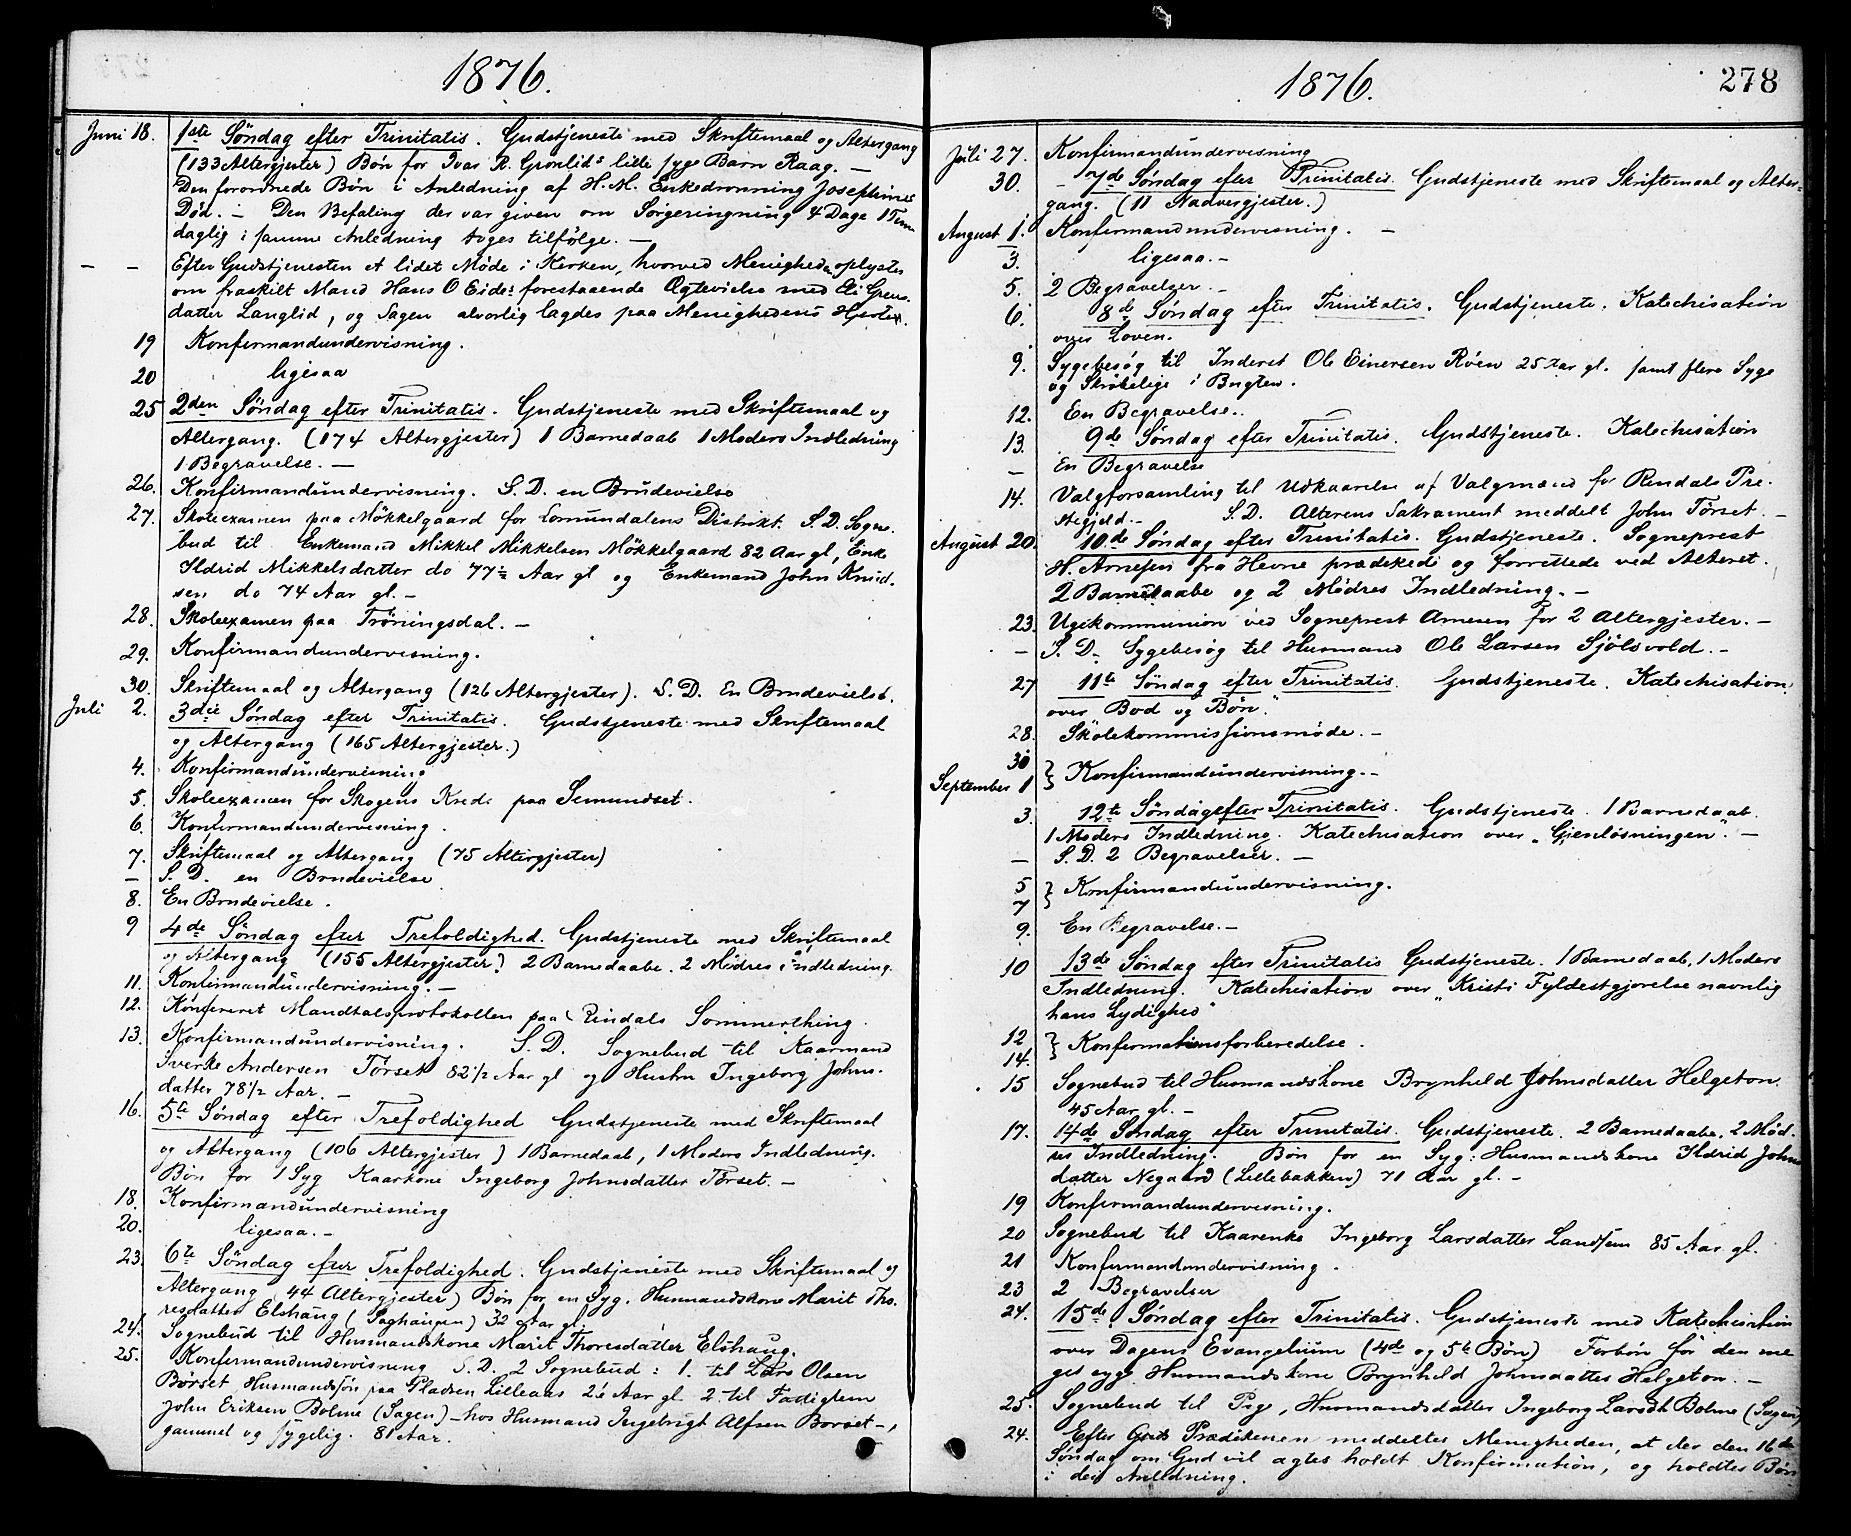 1876.
Juni 18. 1ste Søndag efter Trinitatis. Gudstjeneste med Skriftemaal og Altergang
(133 Altergjester) Bøn for Ivar R. Grønlids lille syge Barn Raag. —
Den forordnede Bøn i Anledning af H. M. Enkedronning Josephines
Død. — Den Befaling der var given om Sørgeringning 4 Dage 1 Time
daglig i samme Anledning toges tilfølge. —
— — Efter Gudstjenesten et lidet Møde i Kirken, hvorved Menigheden oplystes
om fraskilt Mand Hans O Eides forestaaende Ægtevielse med
datter Langlid, og Sagen alvorlig lagdes paa Menighedens Hjerte.
19 Konfirmandundervisning.
20 ligesaa
25 2den Søndag efter Trinitatis. Gudstjeneste med Skriftemaal og
Altergang. (174 Altergjester) 1 Barnedaab 1 Moders Indledning
1 Begravelse. —
26. Konfirmandundervisning. S. D. en Brudevielse
27. Skoleexamen paa Møkkelgaard for Lomundalens Distrikt. S. D. Sogne-
bud til Enkemand Mikkel Mikkelsen Møkkelgaard 82 Aar gl, Enke
Ildrid Mikkelsdatter do 77½ Aar gl og Enkemand John Knud-
sen do 74 Aar gl. —
28. Skoleexamen paa Trøningsdal. —
29. Konfirmandundervisning.
30. Skriftemaal og Altergang (126 Altergjester). S. D. En Brudevielse.
Juli 2. 3die Søndag efter Trinitatis. Gudstjeneste med Skriftemaal
og Altergang (165 Altergjester.)
4. Konfirmandundervisning
5. Skoleexamen for Skogens Kreds paa Semundset.
6. Konfirmandundervisning.
7. Skriftemaal og Altergang (75 Altergjester)
— S. D. en Brudevielse
8. En Brudevielse.
9 4de Søndag efter Trefoldighed. Gudstjeneste med Skriftemaal
og Altergang (155 Altergjester) 2 Barnedaabe. 2 Mødres Indledning.
11. Konfirmandundervisning. —
12. Konfereret Mandtalsprotokollen paa Rindals Sommerthing.
13. Konfirmandundervisning. S. D. Sognebud til Kaarmand
Sverke Andersen Tørset 82 1/2 Aar gl og Hustru Ingeborg Johns-
datter 78 1/2 Aar. —
16. 5te Søndag efter Trefoldighed Gudstjeneste med Skriftemaal
og Altergang (106 Altergjester) 1 Barnedaab, 1 Moders Indledning.
Bøn for 1 Syg Kaarkone Ingeborg Johnsdatter Tørset. —
18. Konfirmandundervisning
20. ligesaa. —
23. 6te Søndag efter Trefoldighed. Gudstjeneste med Skriftemaal og
Altergang (44 Altergjester) Bøn for en Syg. Husmandskone Marit Tho-
resdatter Elshaug (Saghaugen) 32 Aar gl.
24. Sognebud til Husmandskone Marit Thoresdatter Elshaug.
25. Konfirmandundervisning S. D. 2 Sognebud: 1. til Lars Olsen
Børset Husmandssøn paa Pladsen Lilleaas 26 Aar gl. 2. til Fattiglem
John Eriksen Bolme (Sagen) — hos Husmand Ingebrigt Alfsen Børset —,
gammel og sygelig. 81 Aar.
1876.
278
Juli 27. Konfirmandundervisning
30. — 7de Søndag efter Trinitatis. Gudstjeneste med Skriftemaal og Alter-
gang. (11 Nadvergjester.)
August 1. Konfirmandundervisning. —
3. ligesaa. —
5. 2 Begravelser. —
6. 8de Søndag efter Trinitatis. Gudstjeneste. Katechisation
over Loven.
9. Sygebesøg til Inderst Ole Einersen Røen 25 Aar gl. samt flere Syge
og Skrøbelige i Bugten.
12. En Begravelse.
13. 9de Søndag efter Trinitatis. Gudstjeneste. Katechisation
— En Begravelse
14. Valgforsamling til Udkaarelse af Valgmænd for Rindals Pre-
stegjeld. — S. D. Alterens Sakrament meddelt John Tørset. —
August 20. 10de Søndag efter Trinitatis. Gudstjeneste. Sogneprest
H. Arnesen fra Hevne prædikede og forrettede ved Alteret.
2 Barnedaabe og 2 Mødres Indledning. —
23. Ugekommunion ved Sogneprest Arnesen for 2 Altergjester. —
— S. D. Sygebesøg til Husmand Ole Larsen Sjølsvold. —
27 11te Søndag efter Trinitatis. Gudstjeneste. Katechisation
over Bod og Bøn."
28. Skolekommissionsmøde. —
30
September 1 } Konfirmandundervisning. —
3. 12te Søndag efter Trinitatis. Gudstjeneste. 1 Barnedaab.
1 Moders Indledning. Katechisation over „Gjenløsningen". —
— S. D. 2 Begravelser. —
5
7 } Konfirmandundervisning.
9. En Begravelse. —
10 13de Søndag efter Trinitatis Gudstjeneste. 1 Barnedaab, 1 Moders
Indledning. Katechisation over „Kristi Fyldestgjørelse navnlig
hans Lydighed"
12
14. } Konfirmationsforberedelse.
15 Sognebud til Husmandskone Brynhild Johnsdatter Helgeton.
45 Aar gl. —
17. 14de Søndag efter Trinitatis. Gudstjeneste. 2 Barnedaabe. 2 Mød-
res Indledning. Bøn for en Syg: Husmandskone Ildrid Johns
datter Negaard (Lillebakken) 71 Aar gl. —
19 Konfirmandundervisning.
20 Sognebud til Kaarenke Ingeborg Larsdatter Landsem 85 Aar gl.
21 Konfirmandundervisning.
23 2 Begravelser
24. 15de Søndag efter Trinitatis. Gudstjeneste med Katechisation
over Dagens Evangelium (4de og 5te Bøn) Forbøn for den me-
get syge Husmandskone Brynhild Johnsdatter Helgeton. —
25. Sognebud til Pige, Husmandsdatter Ingeborg Larsdt Bolme (Sagen)
24. Efter Prædikenen meddeltes Menigheden, at der den 16de
Søndag om Gud vil agtes holdt Konfirmation, og holdtes Bøn
i den Anledning.